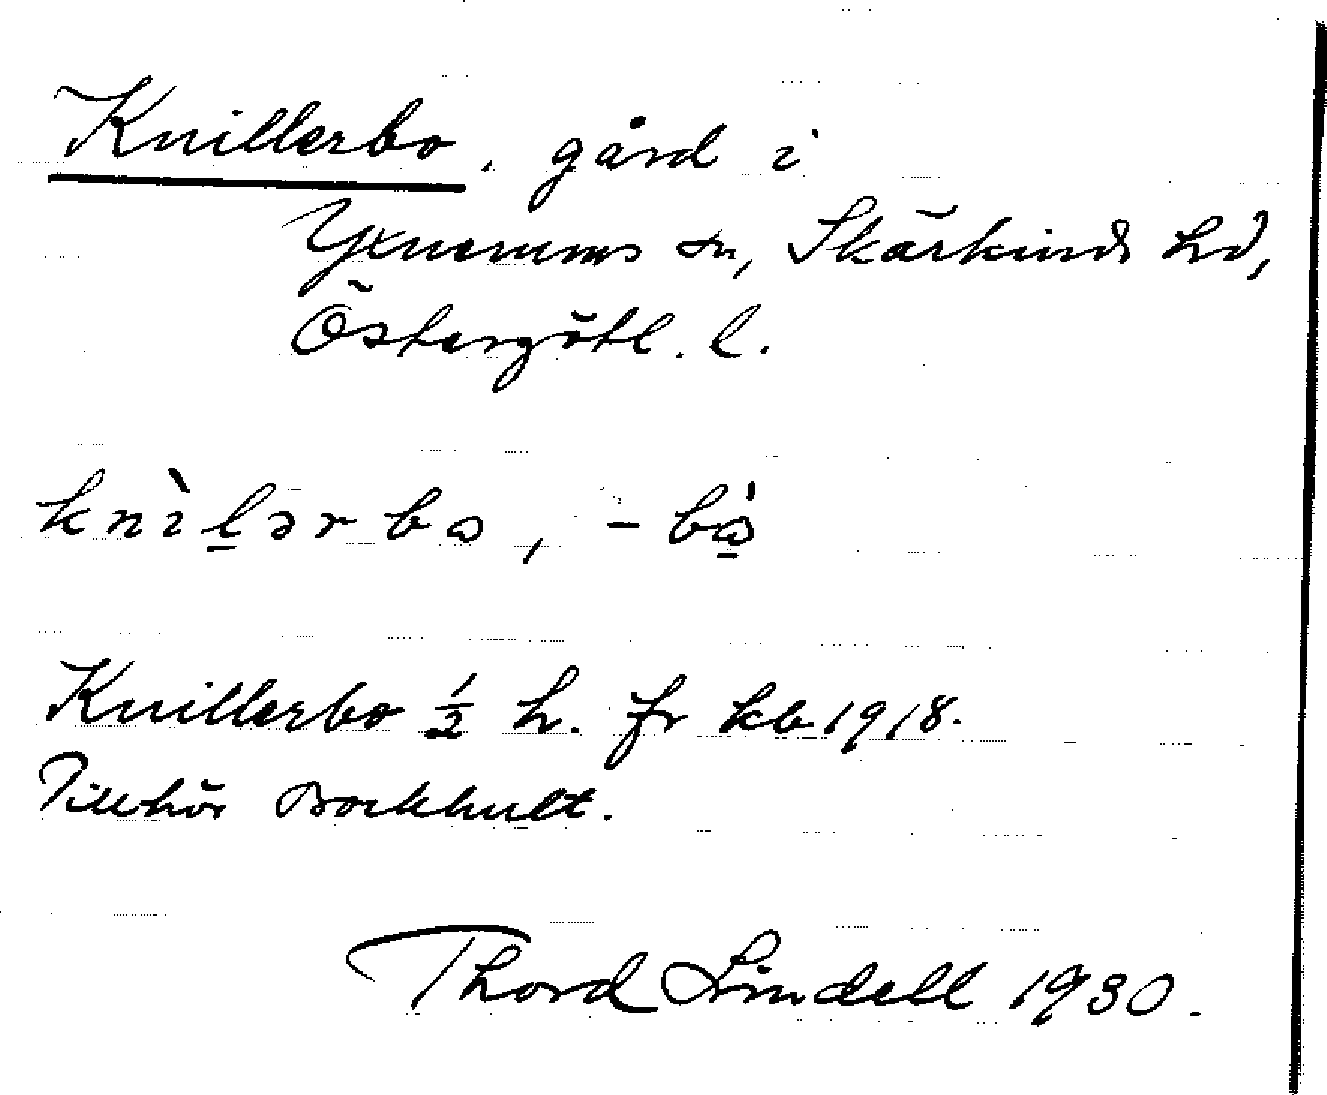 Knillerbo, gård i
Yxnerums sn, Skärkinds hd,
Östergötl. l.
knìlərbo, -bò
Knillerbo 1/2 h. fr kb 1918.
Tillhör Borkhult.
Thord Lindell 1930.